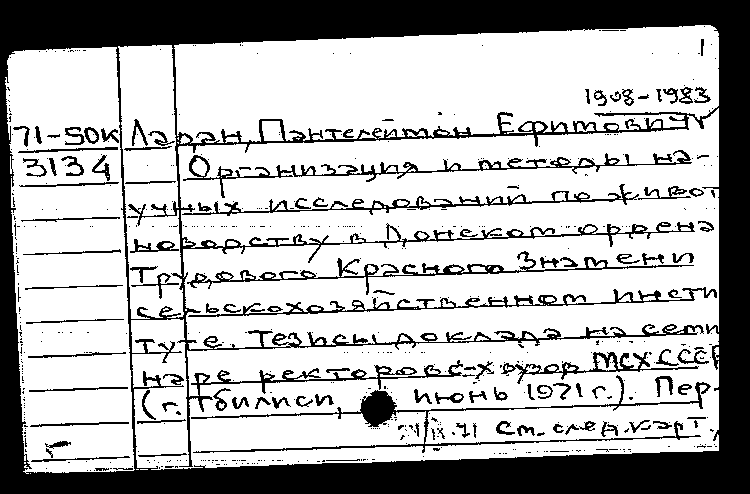 1
1908-1983
71-50К Ладан, Пантелеймон Ефимович
3134 Организация и методы на-
учных исследований по живот
новодству в Донском ордена
Трудового Красного Знамени
сельскохозяйственном инсти
туте. Тезисы доклада на семи
наре ректоров с-х МСХ СССР
(г. Тбилиси, июнь 1971 г.). Пер-
5 71 См. след. карт.